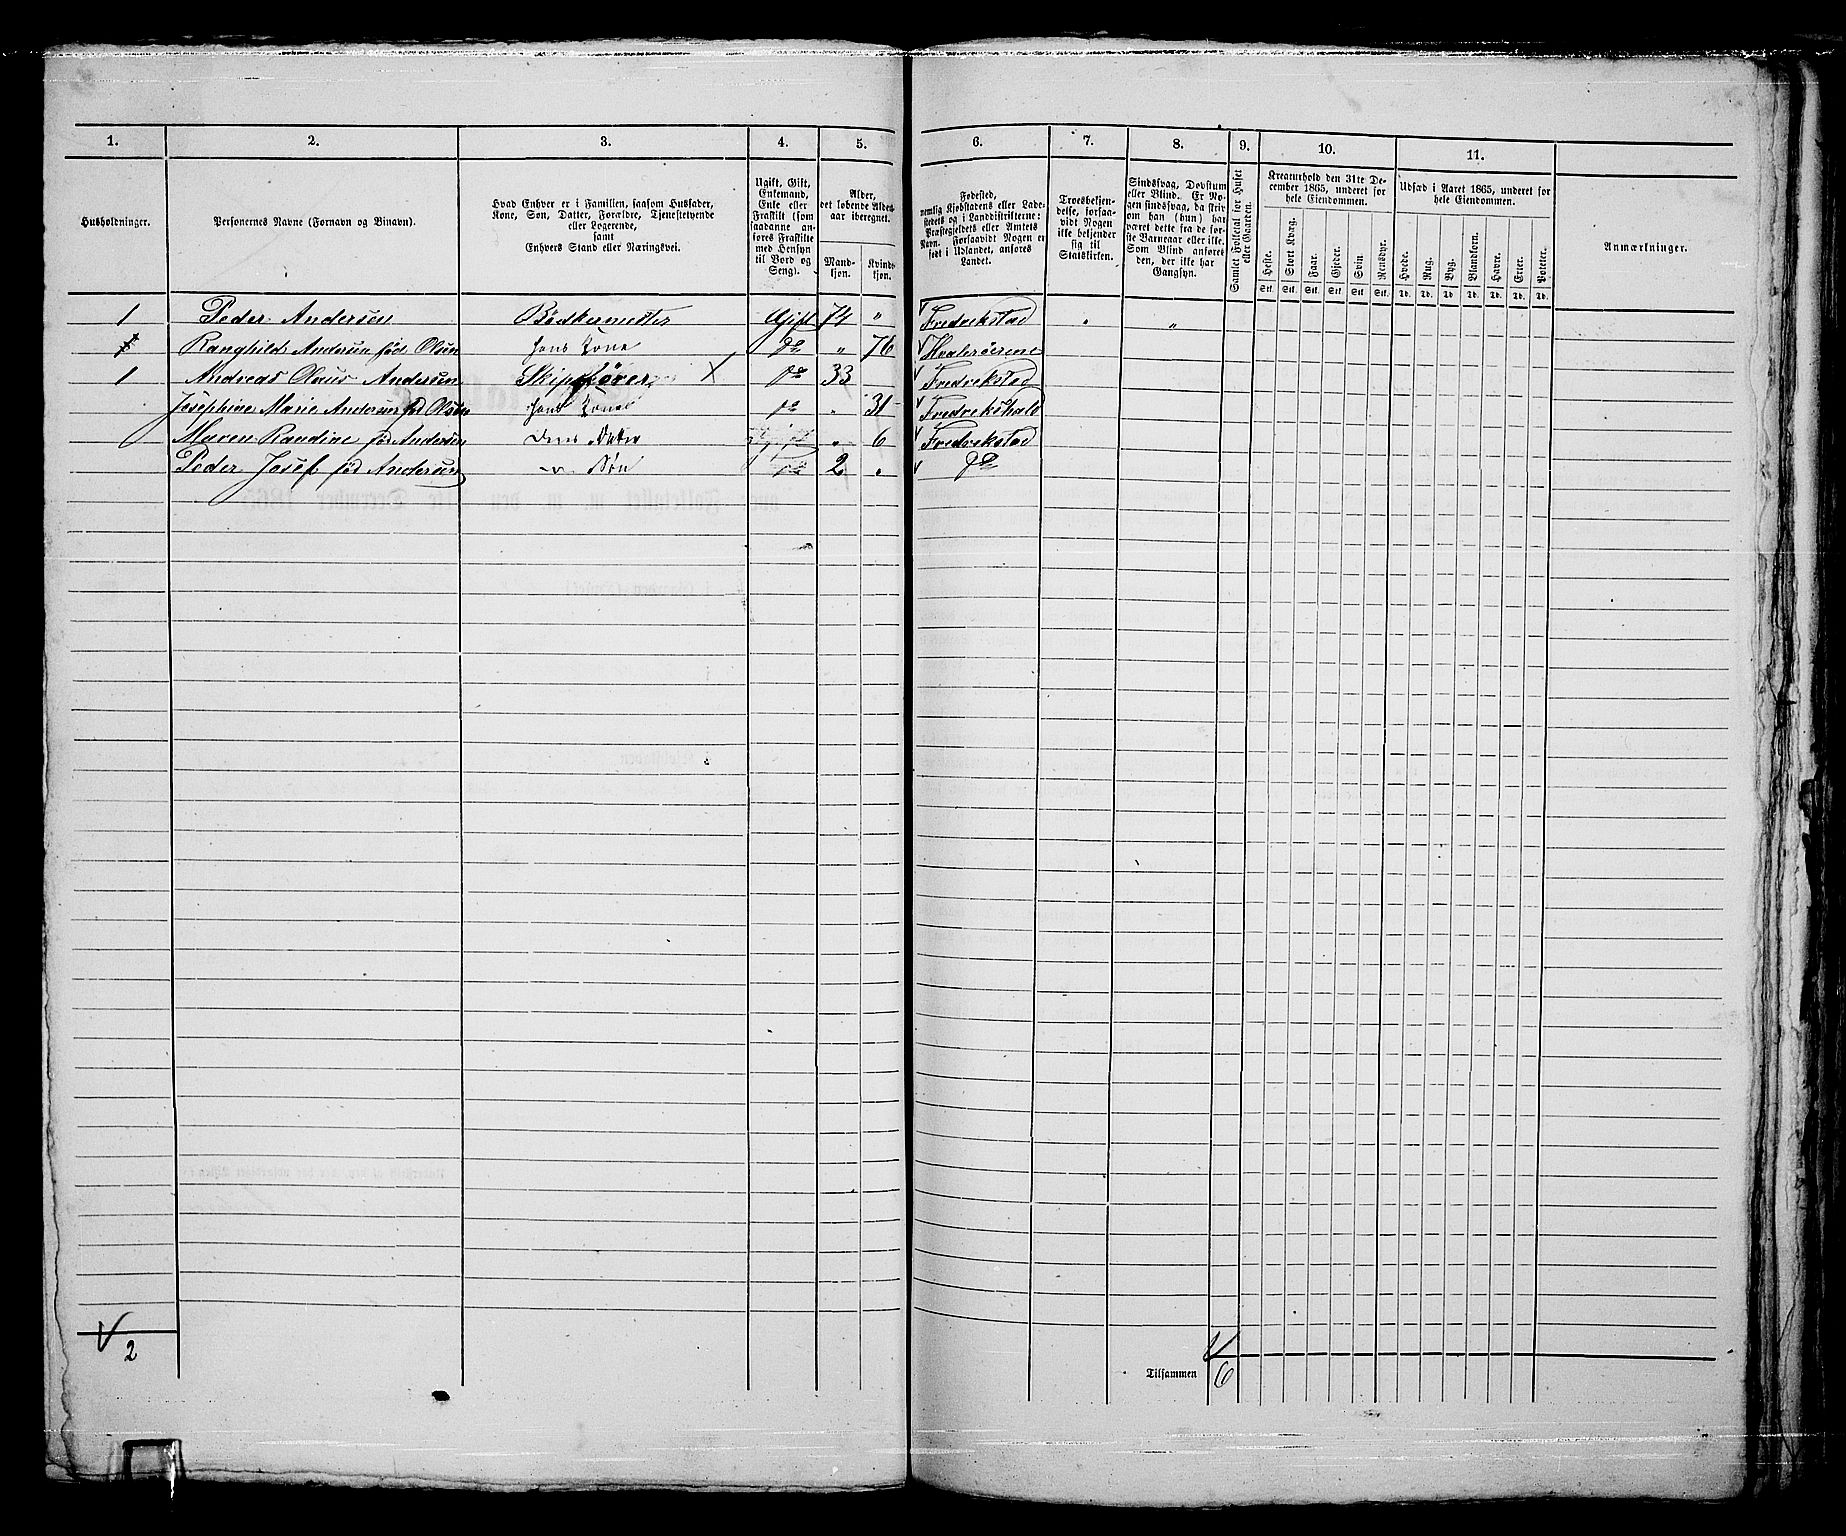 1. 2. 3. 4. 5. 6. 7. 8. 9. 10. 11.
Husholdninger.
Personernes Navne (Fornavn og Binavn).
Hvad Enhver er i Familien, saasom Husfader,
Kone, Søn, Datter, Forældre, Tjenestetyende
eller Logerende,
samt
Enhvers Stand eller Næringsvei.
Ugift, Gift,
Enkemand,
Enke eller
Fraskilt (som
saadanne an-
føres Fraskilte
med Hensyn
til Bord og
Seng).
Alder,
det løbende Alders-
aar iberegnet.
Mand-
kjøn.
Kvinde-
kjøn.
Fødested,
nemlig Kjøbstadens eller Lade-
stedets og i Landdistrikterne:
Præstegjeldets eller Amtets
Navn. Forsaavidt Nogen er
født i Udlandet, anføres
Landet.
Troesbekjen-
delse, forsaa-
vidt Nogen
ikke bekjender
sig til
Statskirken.
Sindssvag, Døvstum
eller Blind. Er No-
gen sindssvag, da skriv
om han (hun) har
været dette fra de før-
ste Barneaar eller ikke.
Som Blind anføres
den, der ikke har
Gangsyn.
Samlet Folketal for Huset
eller Gaarden.
Kreaturhold den 31te De-
cember 1865, underet for
hele Eiendommen.
Heste. Stort Kvæg. Faar. Gjeder. Svin. Rensdyr.
Stk. Stk. Stk. Stk. Stk. Stk.
Udsæd i Aaret 1865, underet for
hele Eiendommen.
Hvede. Rug. Byg. Blandkorn. Havre. Erter. Poteter.
Td. Td. Td. Td. Td. Td. Td.
Anmærkninger.
1 Peder Andersen Bødkermester Gift 74 " Fredrekstad " "
Ranghild Andersen fød Olsen hans Kone do " 76 Hvaløerene
1 Andreas Olaus Andersen Skipsfører X do 33 Fredrekstad
Josephine Marie Andersen fød Olsen hans Kone do " 31 Fredrekshald
Maren Randine fød Andersen Dens Datter " 6 Fredrekstad
Peder Josef fød Andersen " Søn do 2 " do
2
Tilsammen 6